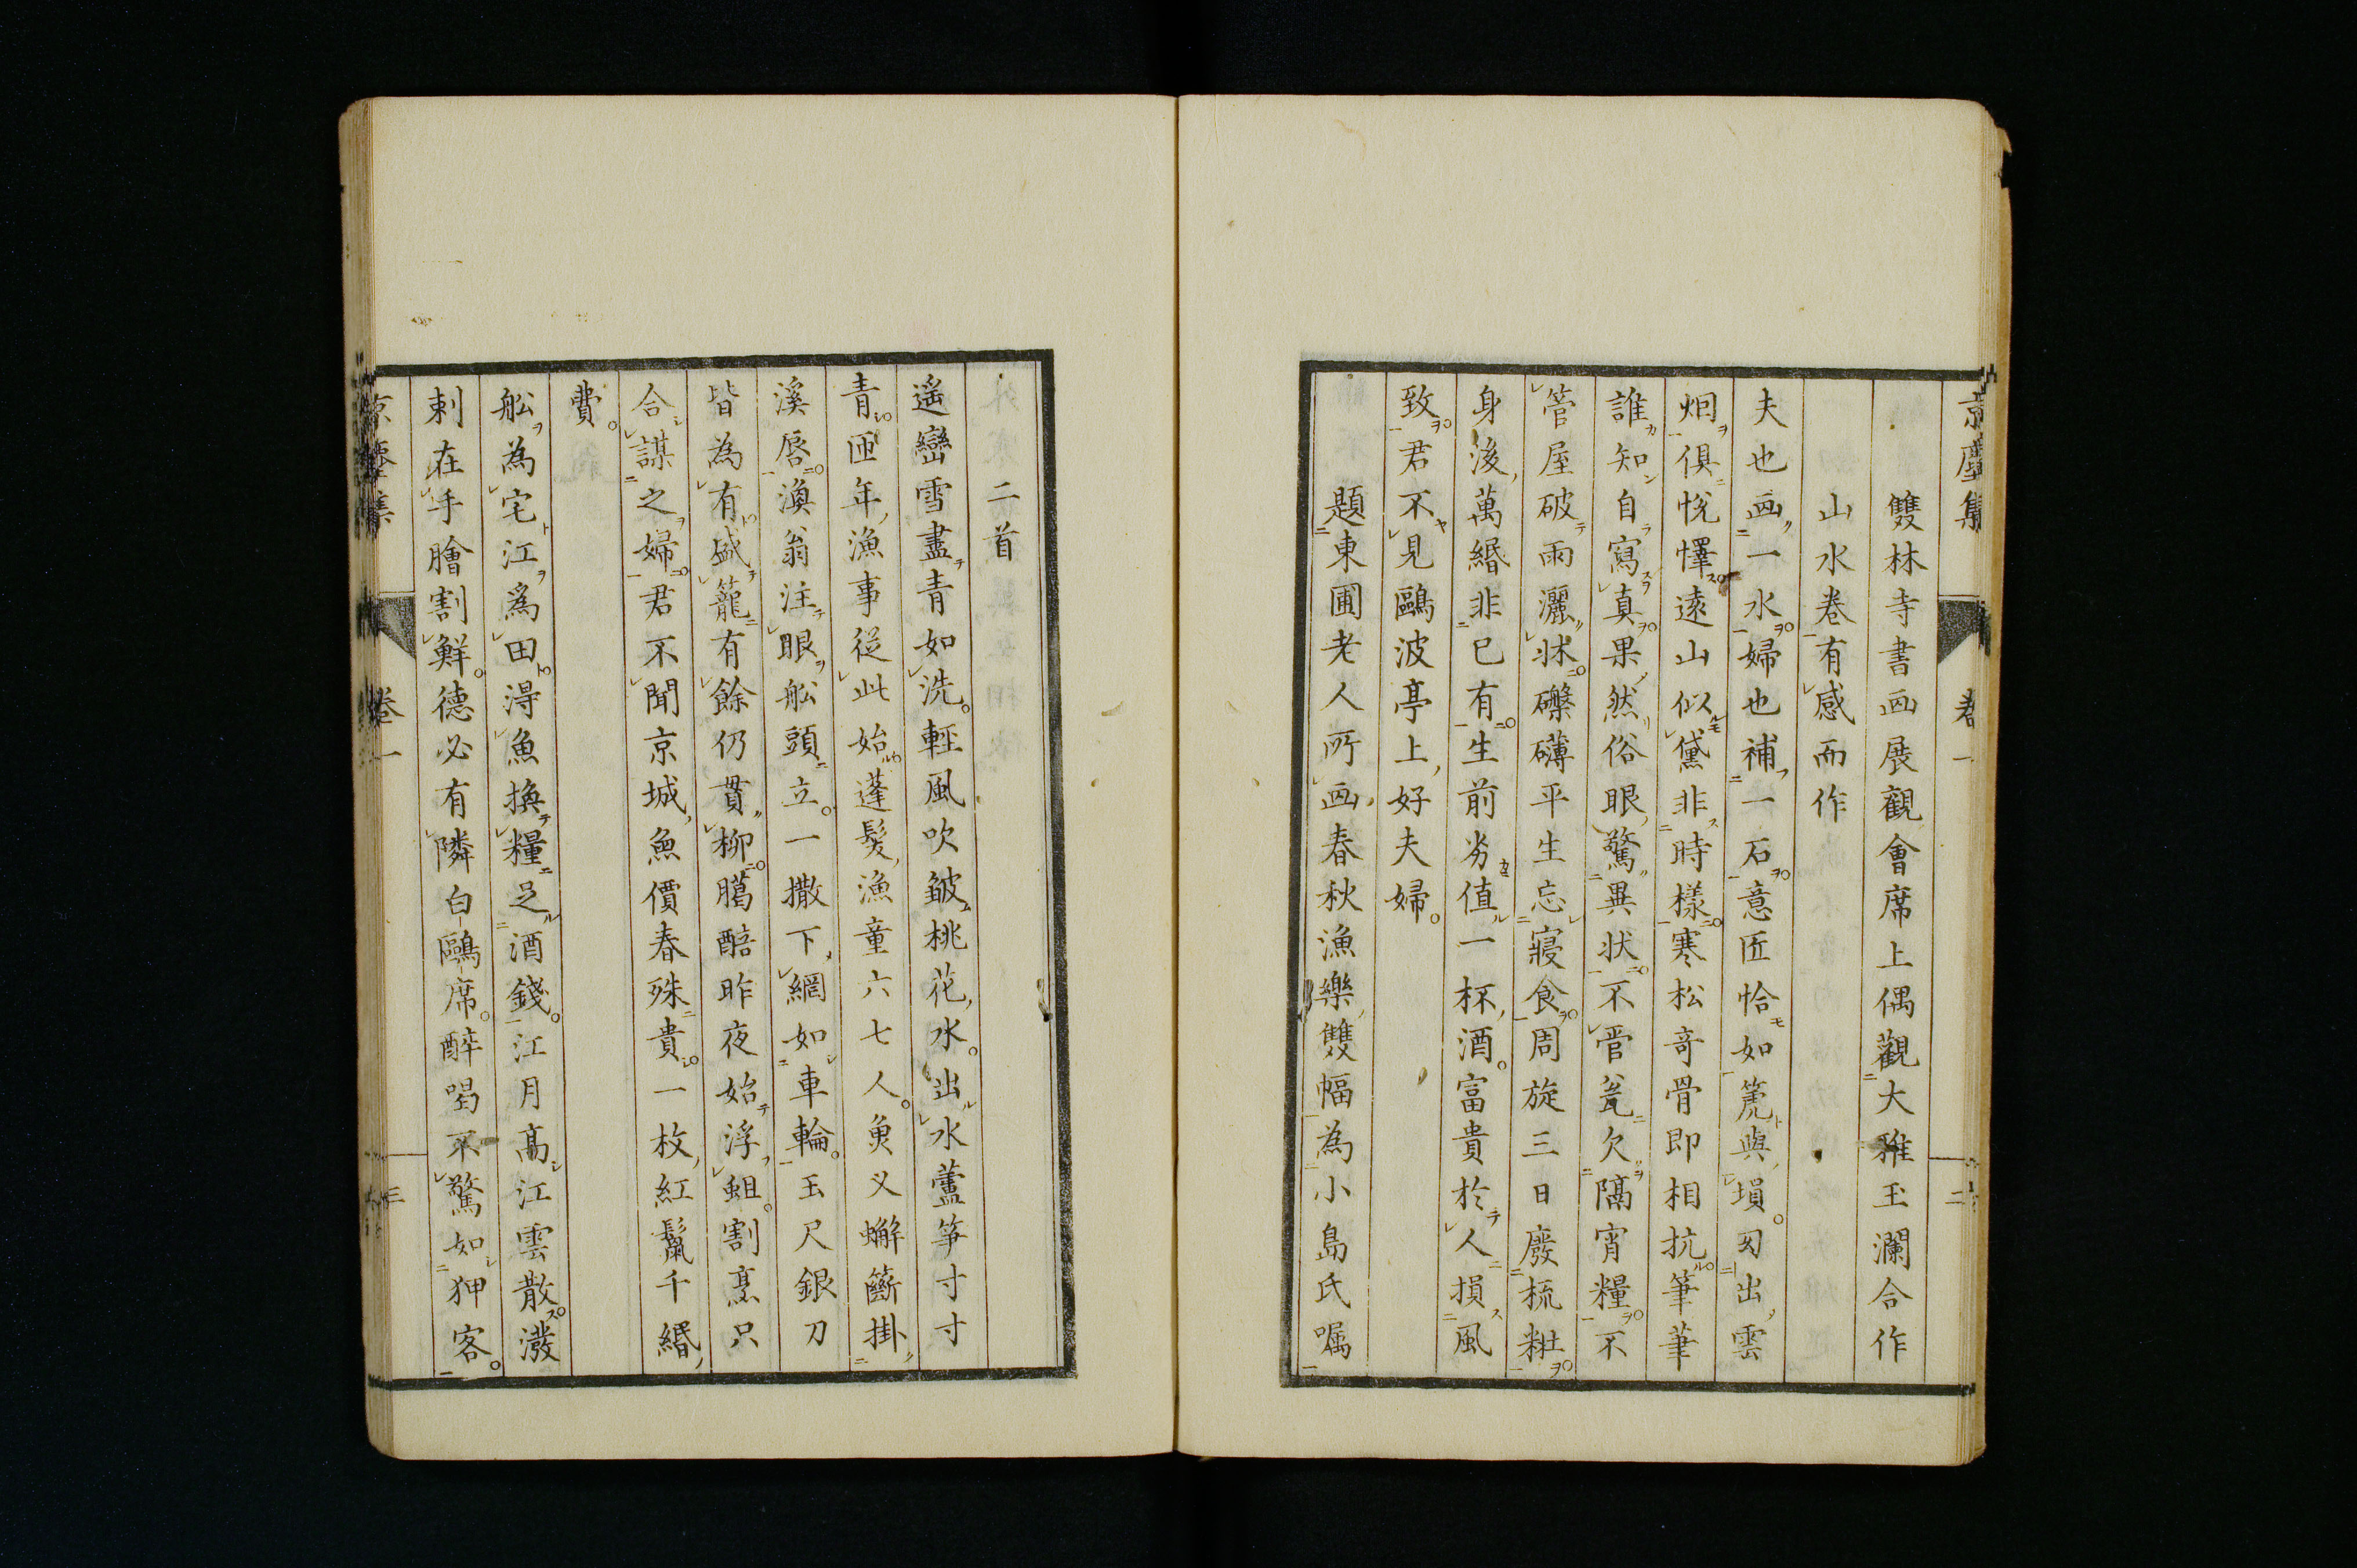 京塵集 卷一 二
雙林寺書画展觀會席上偶觀大雅玉瀾合作
山水卷有感而作
夫也画一水婦也補一石意匠恰如箎與塤図出雲
烟俱悅懌遠山似黛非時樣寒松奇骨即相抗筆筆
誰知自寫真果然俗眼驚異状不管瓮欠隔宵糧不
管屋破雨灑牀礫礴平生忘寢食周旋三日廢梳粧
身後萬緡非已有生前劣值一杯酒富貴於人損風
致君不見鷗波亭上好夫婦
題東圃老人所画春秋漁樂雙幅為小島氏嘱
二首
遥巒雪盡青如洗輕風吹皴桃花水出水蘆笋寸寸
青匝年漁事從此始蓬髮漁童六七人魚叉蠏籪掛
溪唇渙翁注眼舩頭立一撒下網如車輪玉尺銀刀
皆為有盛籠有餘仍貫柳臈醅昨夜始浮蛆割烹只
合謀之婦君不聞京城魚價春殊貴一枚紅鬣千緡
費
舩為宅江為田淂魚換糧足酒錢江月高江雲散潑
剌在手膾割鮮德必有隣白鷗席醉喝不驚如狎客
京塵集 卷一 三